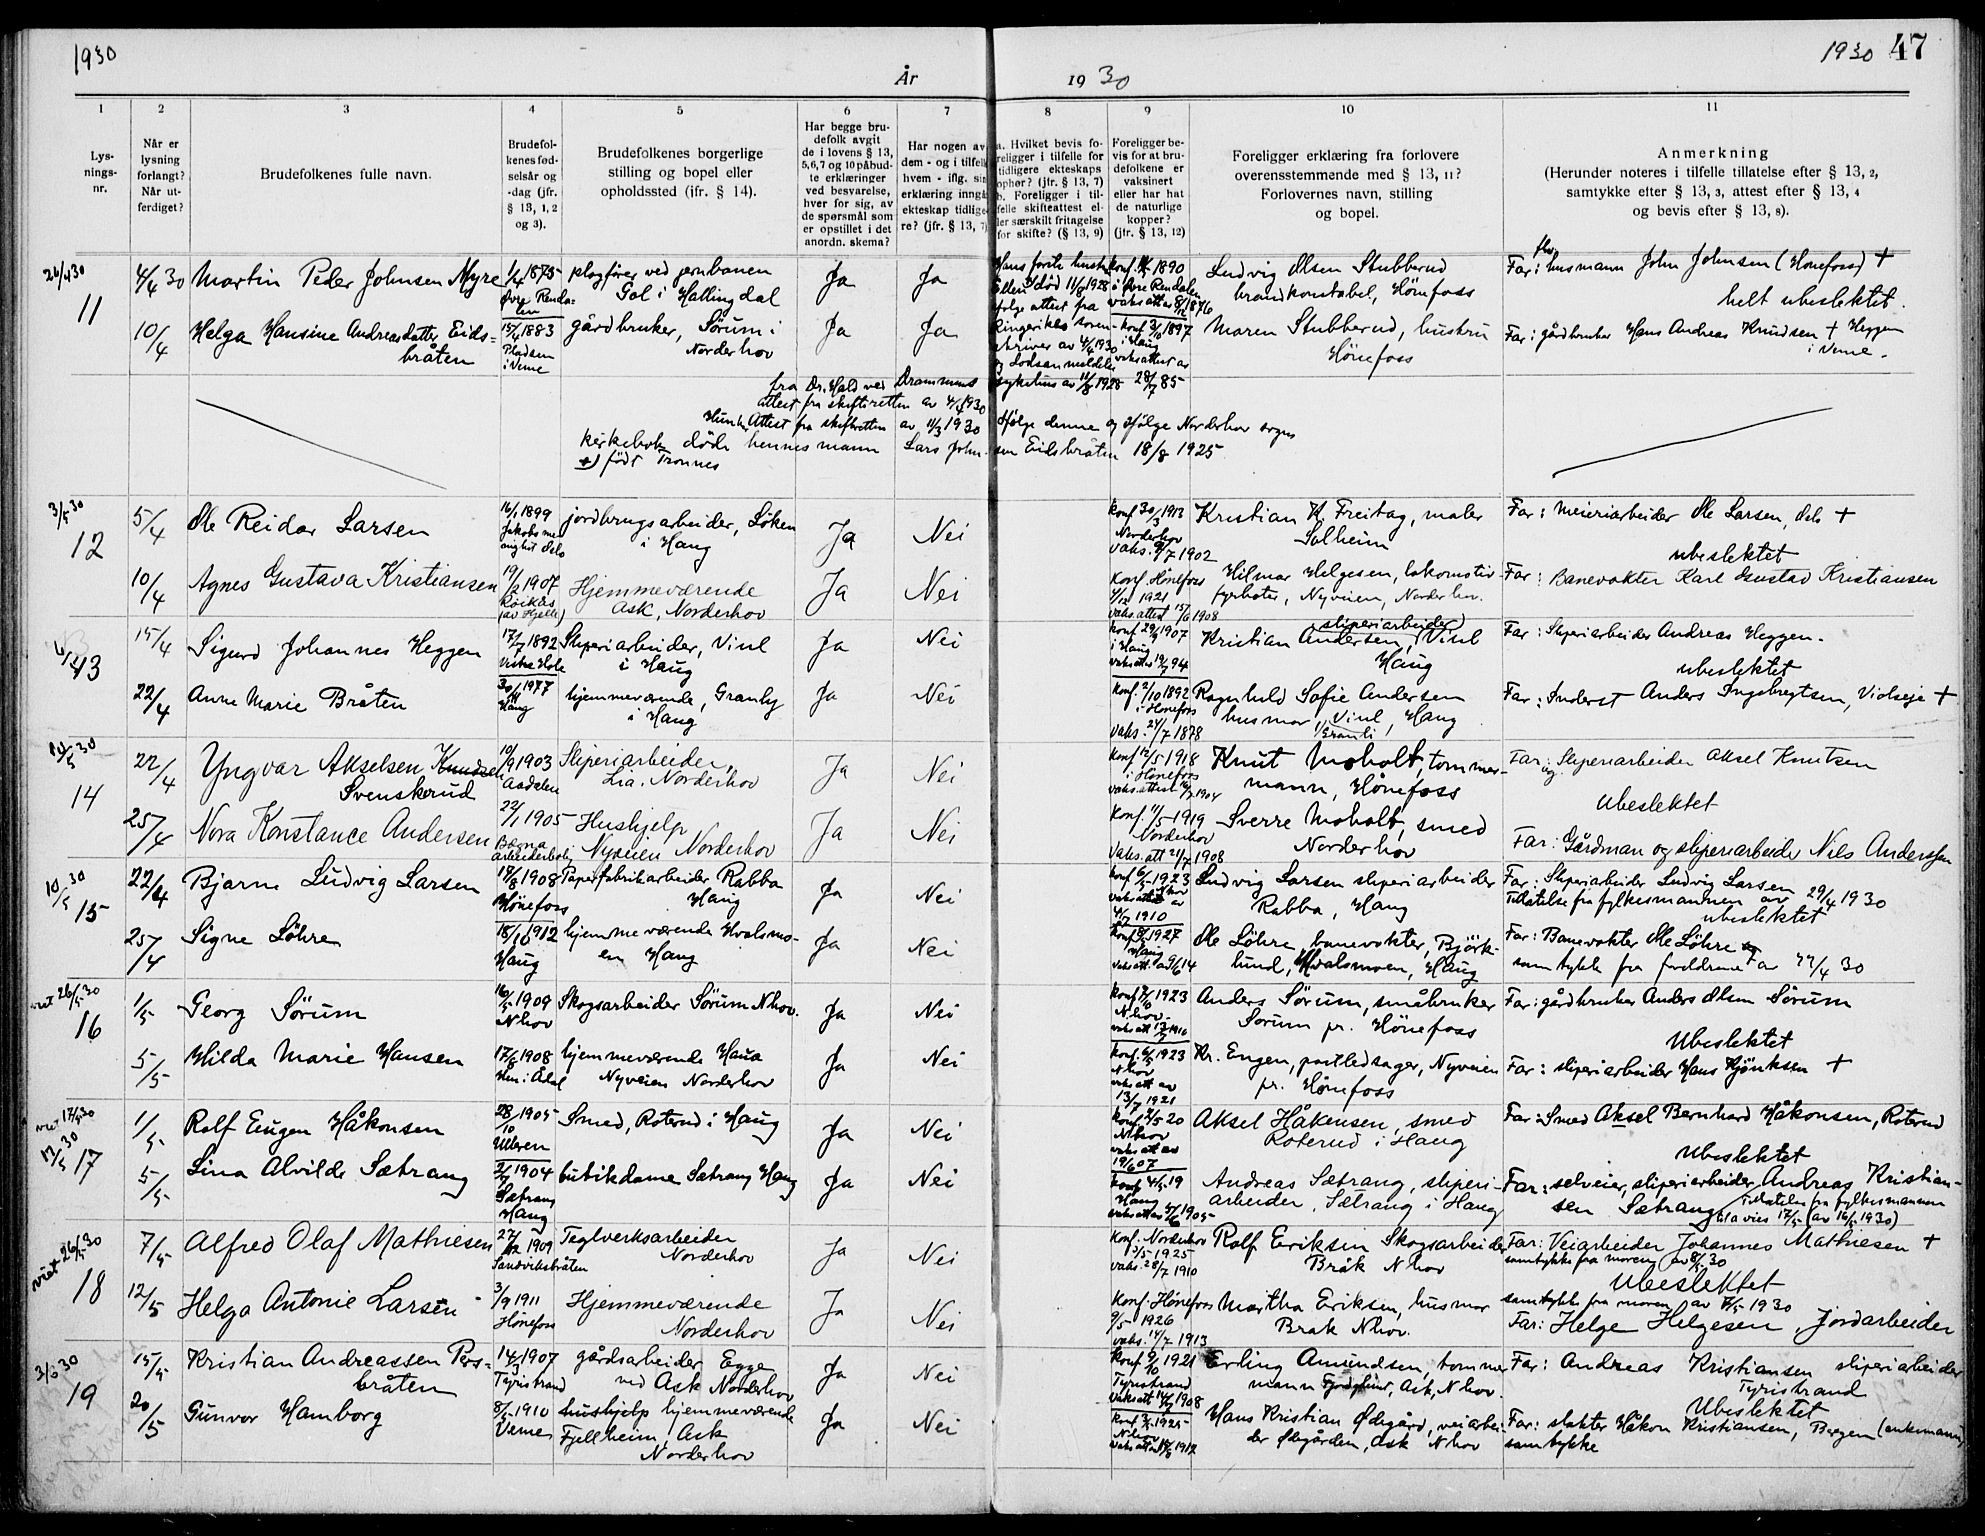 1930
År
19 30
1930 47
1
2
3
4
5
6
7
8
9
10
11
Lys-
nings-
nr.
Når er
lysning
forlangt?
Når ut-
ferdiget?
Brudefolkenes fulle navn.
Brudefol-
kenes fød-
selsår og
-dag (jfr.
§ 13, 1, 2
og 3).
Brudefolkenes borgerlige
stilling og bopel eller
opholdssted (ifr. § 14).
Har begge bru-
defolk avgit
de i lovens § 13,
5,6,7 og 10 påbud-
te erklæringer
ved besvarelse,
hver for sig, av
de spørsmål som
er opstillet i det
anordn. skema?
Har nogen av
dem - og i tilfelle
hvem - iflg. sin
erklæring inngå
ekteskap tidlige-
re? (jfr. § 13, 7)
a. Hvilket bevis fo-
religger i tilfelle for
tidligere ekteskaps
ophør? (jfr. § 13, 7)
b. Foreligger i til-
felle skifteattest el-
ler særskilt fritagelse
for skifte? (§ 13, 9)
Foreligger be-
vis for at bru-
defolkene er
vaksinert
eller har hat
de naturlige
kopper?
(jfr. § 13, 12)
Foreligger erklæring fra forlovere
overensstemmende med § 13, 11?
Forlovernes navn, stilling
og bopel.
Anmerkning
(Herunder noteres i tilfelle tillatelse efter § 13, 2,
samtykke efter § 13, 3, attest efter § 13, 4
og bevis efter § 13, 8).
26/4 30
11
4/4 30 Martin Peder Johnsen Myre
1/4 1875
Øvre Renda-
len
plogfører ved jernbanen
Gol i Hallingdal
Ja
Ja
Hans første hustru
Ellen død 11/8 1928
følge attest fra
Ringerikes soren-
skriver av 4/4 1930
og dødsanmeldelse
sykehus av 11/8 1928
konf. 1890
i Øvre Rendalen
vaks att av 8/12 1876
Ludvig Olsen Stubberud
brandkonstabel, Hønefoss
Far: husmann John Johnsen (Hønefoss) +
helt ubeslektet.
10/4
Helga Hansine Andreasdatter Eids-
bråten
15/4 1883
Pladsen
i Veme
gårdbruker, Sørum i
Norderhov
Ja
Ja
konf. 3/10 1897
i Haug
vaks attest av
28/7 85
Maren Stubberud, hustru
Hønefoss
Far: gårdbruker Hans Andreas Knudsen + Heggen
i Veme.
fra Dr. Hald ved Drammens
attest fra skifteretten av 4/4 1930
Hun har Attest fra skifteretten av 11/3 1930 Ifølge denne og ifølge Norderhov sogns
kirkebok døde hennes mann Lars John- sen Eidsbråten 18/8 1925
+) født Tronnes
3/5 30
12
5/4
Ole Reidar Larsen
16/1 1899
Jakobs me-
nighet Oslo
jordbrugsarbeider, Løken
i Haug
Ja
Nei
konf 30/3 1913
Norderhov
vaks. 9/7 1902
Kristian K. Freitag, maler
Solheim
Far: meieriarbeider Ole Larsen, Oslo +
ubeslektet
10/4
Agnes Gustava Kristiansen
19/2 1907
Røikås
(av Hjelle)
Hjemmeværende
Ask, Norderhov
Ja
Nei
Konf. Hønefoss
4/12 1921
vaks.attest 15/6 1908
Hilmar Helgesen, lokomotiv-
fyrbøter, Nyveien, Norderhov.
Far: Banevokter Karl Gustav Kristiansen
13
15/4
Sigurd Johannes Heggen
17/7 1892
Vestre Hole
Sliperiarbeider, Viul
i Haug
Ja
Nei
konf 29/9 1907
i Haug
vaks att 19/7 94
sliperiarbeider
Kristian Andersen, Viul
Haug
Far: Sliperiarbeider Andreas Heggen.
ubeslektet
22/4
Anne Marie Bråten
30/11 1877
Haug
hjemmeværende, Granly
i Haug
Ja
Nei
konf. 2/10 1892
i Hønefoss
vaks. 24/7 1878
Ragnhild Sofie Andersen
husmor, Viul, Haug
Granli
Far: Inderst Anders Ingebregtsen, Violseje +
10/5 30
14
22/4
Yngvar Akselsen Knudsen
Svenskerud
10/9 1903
Aadalen
Sliperiarbeider,
Lia, Norderhov
Ja
Nei
Konf 12/5 1918
i Hønefoss
vaks.attest 16/7 1904
Knut Moholt, tømmer-
mann, Hønefoss
Far: Sliperiarbeider Aksel Knutsen
Ubeslektet
25/4
Nora Konstance Andersen
22/1 1905
Bægna
arbeiderbolig
Hushjelp
Nyveien Norderhov
Ja
Nei
Konf. 11/5 1919
Norderhov
Vaks. att 21/7 1908
Sverre Moholt, smed
Norderhov
Far: Gårdman og sliperiarbeider Nils Anderssen
10/5 30
15
22/4
Bjarne Ludvig Larsen
14/8 1908
Hønefoss
Papirfabrikarbeider Rabba
Haug
Ja
Nei
konf 6/5 1923
N hov
vaksattest av
4/7 1910
Ludvig Larsen sliperiarbeider
Rabba, Haug
Far: Sliperiarbeider Ludvig Larsen
Tillatelse fra fylkesmannen av 29/4 1930
ubeslektet
25/4
Signe Løhre
18/10 1912
Haug
hjemmeværende Hvalsmo-
en Haug
Ja
Nei
Haug
vaks att. av 9/6 14
Ole Løhre, banevokter, Bjørk-
lund, Hvalsmoen, Haug
Far: Banevokter Ole Løhre
samtykke fra foreldrene av 22/4 30
viet 26/5 30
16
1/5
Georg Sørum
16/5 1909
N hov
Skogsarbeider Sørum N hov.
Ja
Nei
N hov.
vaks att 13/7 1916
Anders Sørum, småbruker
Sørum pr. Hønefoss
Far: gårdbruker Anders Olsen Sørum
Ubeslektet
5/5
Hilda Marie Hansen
17/8 1908
Hen i Ådal
hjemmeværende Haua
Nyveien Norderhov
Ja
Nei
konf. 6/5 1923
N hov
vaks att av
13/7 1921
Kr. Engen, postledsager, Nyveien
pr. Hønefoss
Far: sliperiarbeider Hans Kjønksen +
viet 17/5 30
17/5 30
17
1/5
Rolf Eugen Håkonsen
28/10 1905
Ulleren
Smed, Roterud i Haug
Ja
Nei
konf. 2/5 20
N hov
vaks att av
19/6 07
Aksel Håkensen, smed
Roterud i Haug
Far: Smed Aksel Bernhard Håkonsen, Roterud
Ubeslektet
5/5
Lina Alvilde Sætrang
2/7 1904
Sætrang
Haug
butikdame Sætrang Haug
Ja
Nei
konf 4/5 19
Haug
vaks att av 5/6 1905
Andreas Sætrang, sliperi-
arbeider, Sætrang i Haug
Far: selveier, sliperiarbeider Andreas Kristian-
sen Sætrang. Tillatelse fra fylkesmannen
til å vies 17/5 (av 16/5 1930)
viet 26/5 30
18
7/5
Alfred Olaf Mathiesen
27/12 1909
Sandviksbråten
Teglverksarbeider
Norderhov
Ja
Nei
Konf. Norderhov
3/5 1925
vaks. 28/7 1910
Rolf Eriksen Skogsarbeider
Bråk N hov
Far: Veiarbeider Johannes Mathiesen +
samtykke fra moren av 8/5 30
Ubeslektet
12/5
Helga Antonie Larsen
3/9 1911
Hønefoss
Hjemmeværende
Norderhov
Ja
Nei
Konf. Hønefoss
9/5 1926
vaks. 14/7 1913
Martha Eriksen, husmor
Bråk N hov.
samtykke fra moren av 7/5 1930
Far: Helge Helgesen, Jordarbeider
3/6 30
19
15/5
Kristian Andreassen Pers-
bråten
14/3 1907
Tyristrand
gårdsarbeider Egge
ved Ask Norderhov
Ja
Nei
konf 9/10 1921
Tyristrand
Vaks att 14/7 1908
Erling Amundsen, tømmer
mann, Ask, N hov.
Far: Andreas Kristiansen sliperiarbeider
Tyristrand
Ubeslektet
20/5
Gunvor Hamborg
8/5 1910
Veme
hushjelp hjemmeværende
Fjellheim, Ask
Norderhov
Ja
Nei
konf 3/5 1925
N hov
Hans Kristian Ødegård, veiarbei-
der Ødegården, Ask N hov
Far: slakter Håkon Kristiansen, Bergen (enkemann)
samtykke